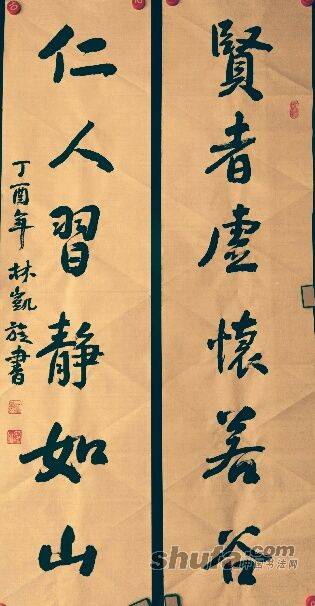 賢者虛懷若谷
仁人習靜如山
丁酉年林凱旋書
shufa
中国书法网